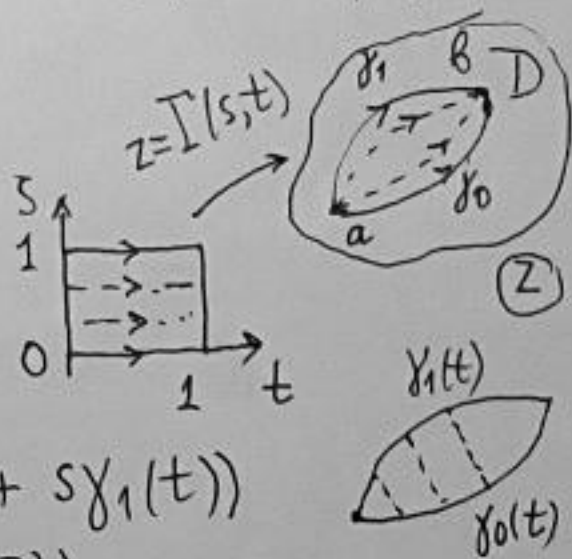 z=I(s,t)
γ₁ b D
γ₀
a
z
s
1
0
1 t
γ₁(t)
+ sγ₁(t))
γ₀(t)